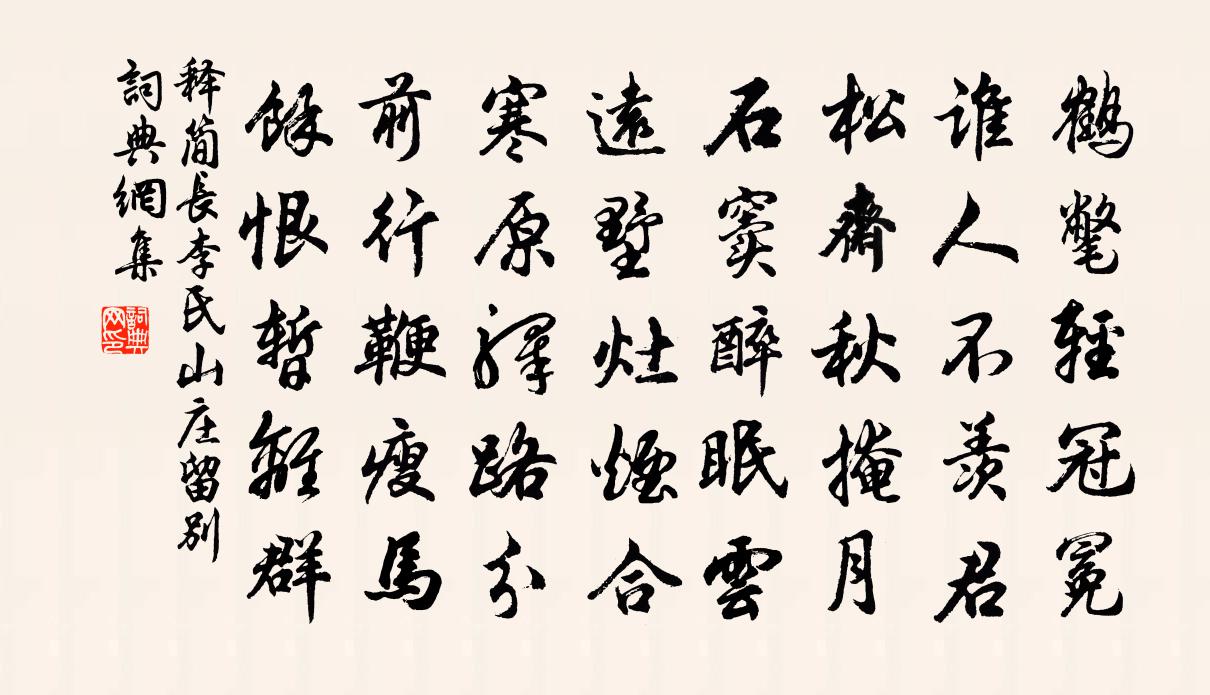 鶴氅輕冠冕
誰人不羨君
松齋秋掩月
石竇醉眠雲
遠墅灶煙合
寒原驛路分
前行鞭瘦馬
餘恨暫離群
释简長李氏山庄留别
詞典網集
詞典网印